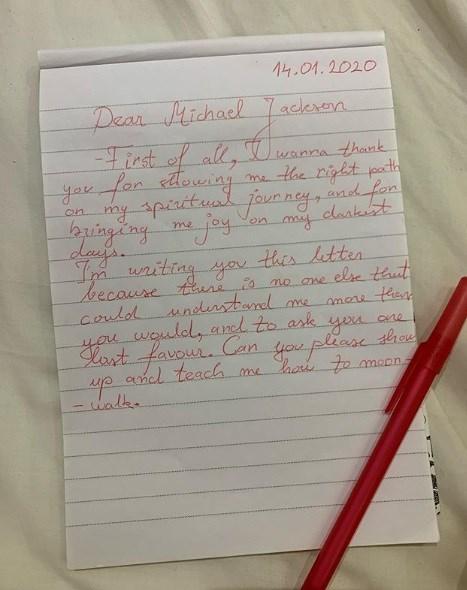 14.01.2020
Dear Michael Jackson
-First of all, I wanna thank
you for showing me the right path
on my spiritual journey, and for
bringing me joy on my darkest
days.
I'm writing you this letter
because there is no one else that
could understand me more than
you would, and to ask you one
last favour. Can you please show
up and teach me how to moon-
- walk.